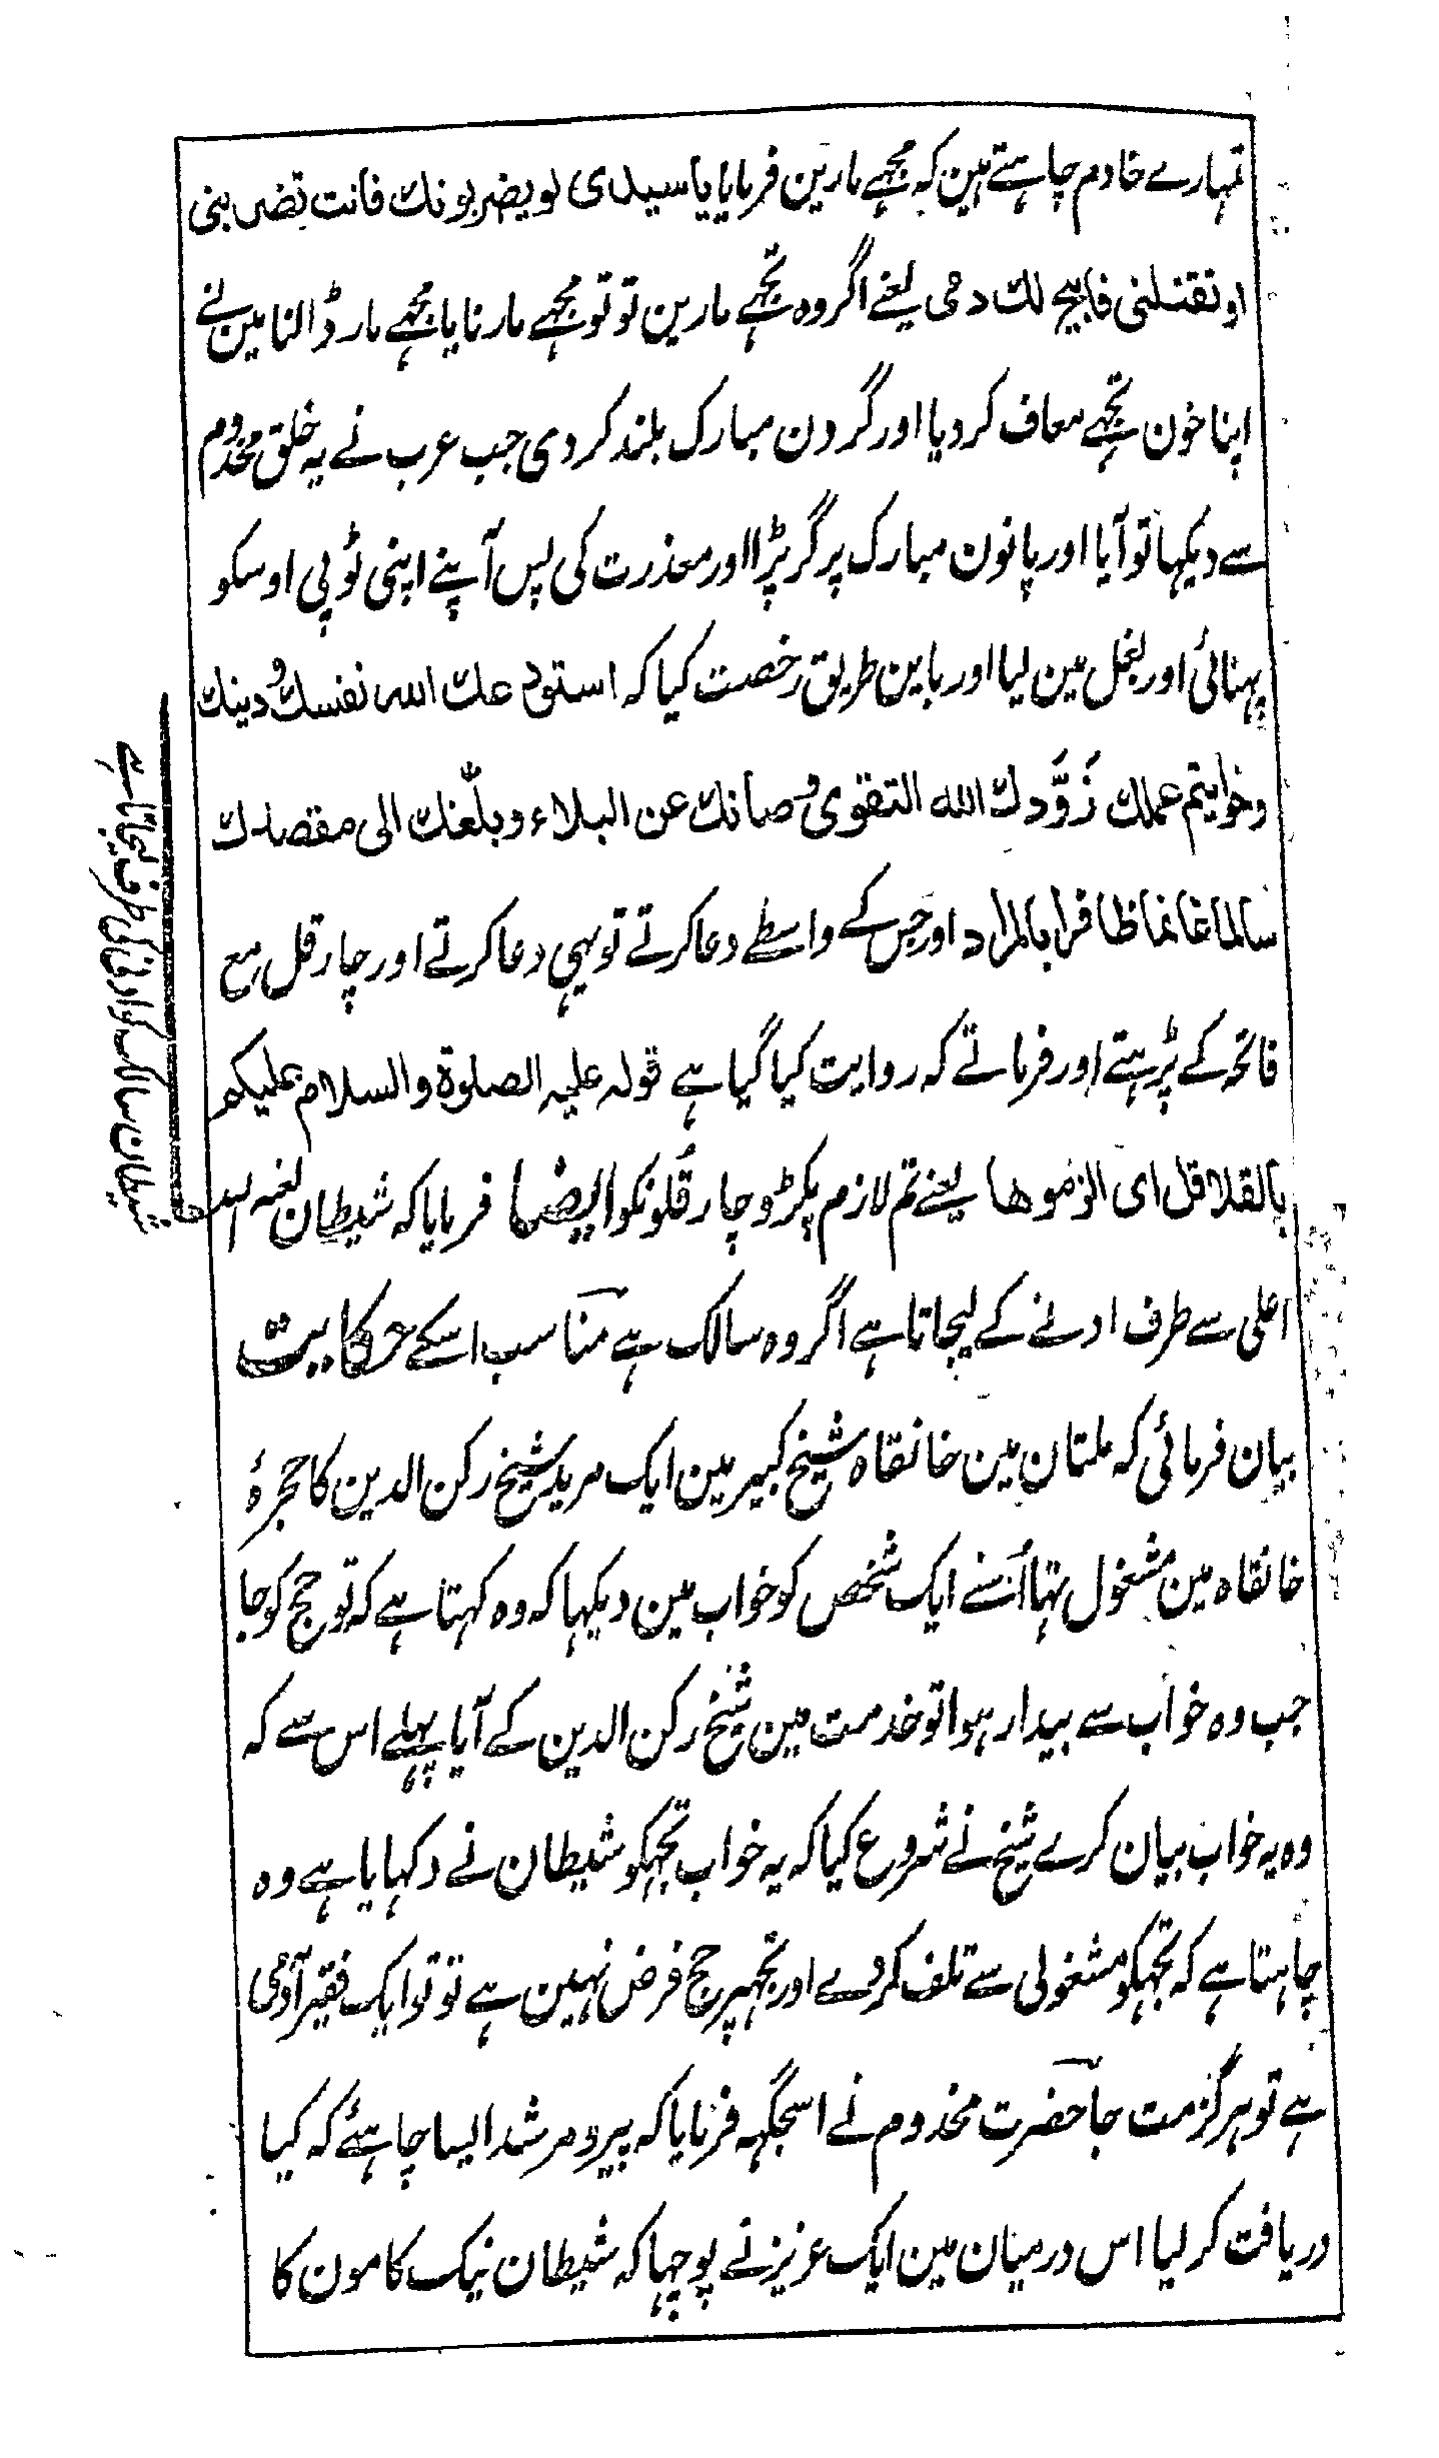 تمہارے خادم چاہتے ہین کہ مجہے مارین فرمایا یا سیدی لو یضربونك فانت تضربنی
او تقتلنی فابیح لك دمی یعنے اگر وہ تجہے مارین تو تو مجہے مارنا یا مجہے مار ڈالنا مین نے
اپنا خون تجہے معاف کر دیا اور گردن مبارک بلند کر دی جب عرب نے یہ خلق مخدوم
سے دیکہا تو آیا اور پانون مبارک پر گر پڑا اور معذرت کی پس آپنے اپنی ٹوپی اوسکو
پہنائی اور بغل مین لیا اور باین طریق رخصت کیا کہ استودعك الله نفسك و دینك
وخواتیم عملك زَوَّدك الله التقوی و صانك عن البلاء و بلّغك الی مقصدك
سالما غانما ظافرا بالمراد اور جس کے واسطے دعا کرتے تو یہی دعا کرتے اور چار قل مع
فاتحہ کے پڑہتے اور فرماتے کہ روایت کیا گیا ہے قولہ علیہ الصلوة والسلام علیکم
بالقلاقل ای الزموها یعنے تم لازم پکڑو چار قُلونکو ایضا فرمایا کہ شیطان لعنہ اللہ
اعلی سے طرف ادنے کے لیجاتا ہے اگر وہ سالک ہے مناسب اسکے حکایت
بیان فرمائی کہ ملتان مین خانقاہ شیخ کبیر مین ایک مرید شیخ رکن الدین کا حجرۂ
خانقاہ مین مشغول تہا اُسنے ایک شخص کو خواب مین دیکہا کہ وہ کہتا ہے کہ تو حج کو جا
جب وہ خواب سے بیدار ہوا تو خدمت مین شیخ رکن الدین کے آیا پہلے اس سے کہ
وہ یہ خواب بیان کرے شیخ نے شروع کیا کہ یہ خواب تجہکو شیطان نے دکہایا ہے وہ
چاہتا ہے کہ تجہکو مشغولی سے تلف کر دے اور تجہپر حج فرض نہین ہے تو تو ایک فقیر آدمی
ہے تو ہرگز مت جا حضرت مخدوم نے اسجگہہ فرمایا کہ پیر و مرشد ایسا چاہئے کہ کیا
دریافت کر لیا اس درمیان مین ایک عزیز نے پوچہا کہ شیطان نیک کامون کا
شیطان سالک کو اعلی سے ادنی کی طرف لیجاتا ہے